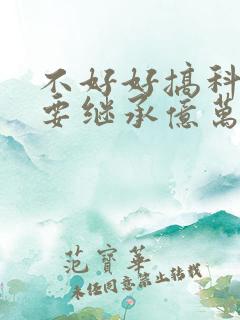 不好好搞科
要继承億萬
范寶華
未经同意禁止转载